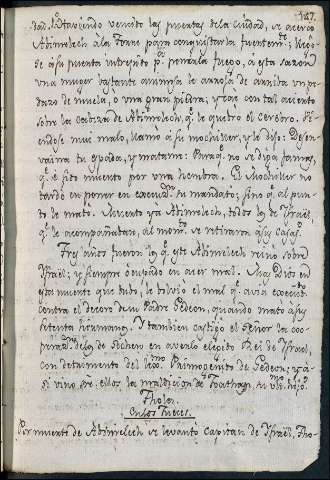 147.
dad. Haviendo vencido las puertas de la Ciudad, se acerco
Abimelech à la Torre para conquistarla fuertem.te; llego
se à su puerta intrepido p.a ponerla fuego, a esta sazon
una muger bastante animosa le arrojò de arriba un pe
dazo de muela, o una gran piedra; y cayò con tal acierto
sobre la cabeza de Abimelech, q.e le quebro el cerebro. Vi
endose mui malo, llamò à su mochiller, y le dijo: Desen
vaina tu espada, y matame: Para q.e no se diga jamas,
q.e è sido muerto por una hembra. El mochiller no
tardò en poner en execuz.n su mandato; sino q.e al pun
to le matò. Muerto ya Abimelech, todos los de Israèl,
q.e le acompañaban, al mom.to se retiraron a sus casas.
Tres años fueron los q.e este Abimelech reino sobre
Israèl; y siempre ocupado en acer mal. Mas Dios en
esta muerte que tubo, le bolviò el mal q.e avia executado
contra el decoro de su Padre Gedeon, quando matò a sus
setenta hermanos. Y tambien castigò el Señor la coo
peraz.n de los de Sichem en averlo elegido Rei de Israel,
con detrimento del Primogenito de Gedeon; y a
si vino sre. ellos la maldicion de Joathan su hijo.
Thola.
en los Jueces.
Por muerte de Abimelech se levantò Capitan de Israèl, Tho-